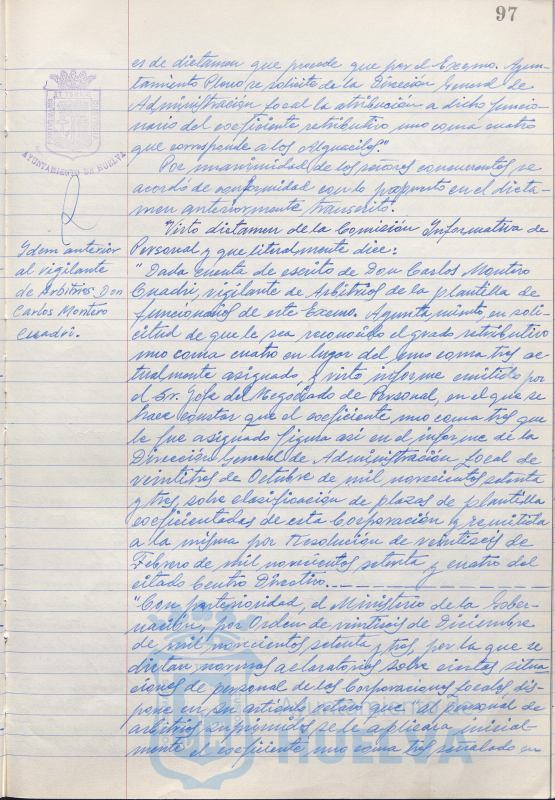 97
es de dictamen que procede que por el Excmo. Ayun-
tamiento Pleno se solicite de la Dirección General de
Administración Local la atribución a dicho funcio-
nario del coeficiente retributivo uno coma cuatro
que corresponde a los Alguaciles."
AYUNTAMIENTO DE HUELVA
Por unanimidad de los señores concurrentes se
acordó de conformidad con lo propuesto en el dicta-
men anteriormente transcrito.
Idem anterior
al vigilante
de Arbitrios Don
Carlos Montero
Cuadri.
Visto dictamen de la Comisión Informativa de
Personal y que literalmente dice:
"Dada cuenta de escrito de Don Carlos Montero
Cuadri, vigilante de Arbitrios de la plantilla de
funcionarios de este Excmo. Ayuntamiento, en soli-
citud de que le sea reconocido el grado retributivo
uno coma cuatro en lugar del uno coma tres ac-
tualmente asignado, y visto informe emitido por
el Sr. Jefe del Negociado de Personal, en el que se
hace constar que el coeficiente, uno coma tres que
le fue asignado figura así en el informe de la
Dirección General de Administración Local de
veintitres de Octubre de mil novecientos setenta
y tres, sobre clasificación de plazas de plantilla
coeficientadas de esta Corporación y remitida
a la misma por Resolución de veintiseis de
Febrero de mil novecientos setenta y cuatro del
citado Centro Directivo.
"Con posterioridad, el Ministerio de la Gober-
nación, por Orden de veintiseis de Diciembre
de mil novecientos setenta y tres, por la que se
dictan normas aclaratorias sobre ciertas situa-
ciones de personal de las Corporaciones Locales, dis-
pone en su artículo octavo que "al personal de
arbitrios suprimidos se le aplicará inicial-
mente el coeficiente uno coma tres señalado en
HUELVA